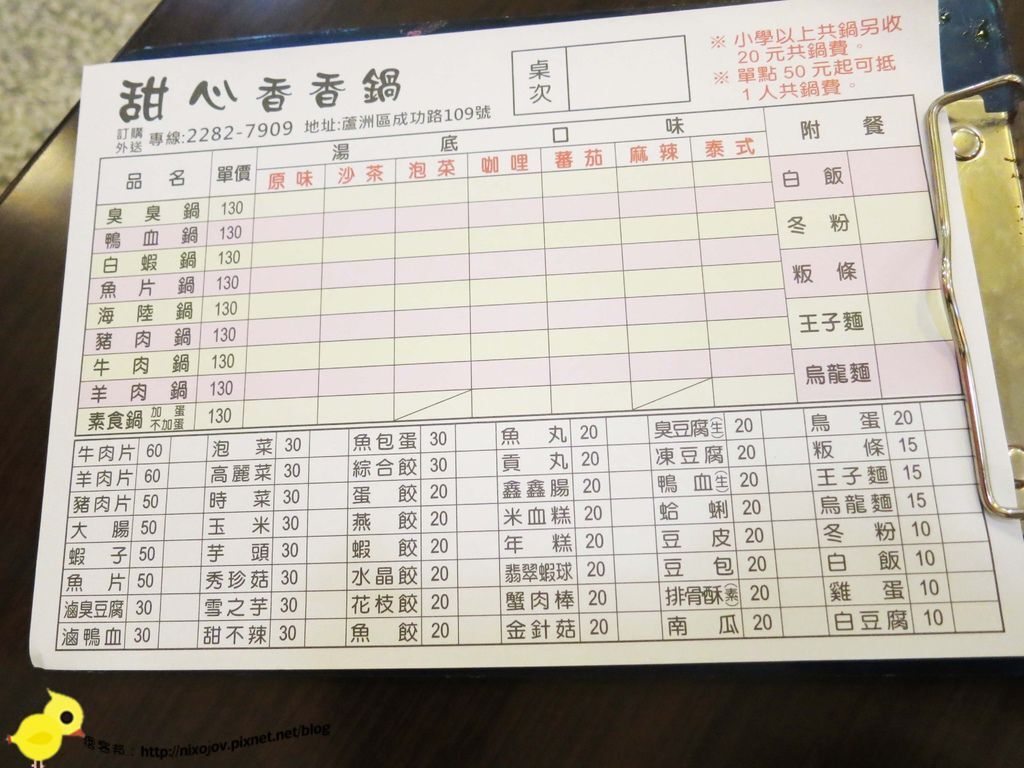 甜心香香鍋
訂購外送 專線:2282-7909 地址:蘆洲區成功路109號
桌次
※ 小學以上共鍋另收
20 元共鍋費。
※ 單點 50 元起可抵
1 人共鍋費。
品名 單價 湯底口味 附餐
原味 沙茶 泡菜 咖哩 蕃茄 麻辣 泰式
臭臭鍋 130
鴨血鍋 130
白蝦鍋 130
魚片鍋 130
海陸鍋 130
豬肉鍋 130
牛肉鍋 130
羊肉鍋 130
素食鍋 加蛋 不加蛋 130
白飯
冬粉
粄條
王子麵
烏龍麵
牛肉片 60 泡菜 30 魚包蛋 30 魚丸 20 臭豆腐(生) 20 鳥蛋 20
羊肉片 60 高麗菜 30 綜合餃 30 貢丸 20 凍豆腐 20 粄條 15
豬肉片 50 時菜 30 蛋餃 20 鑫鑫腸 20 鴨血(生) 20 王子麵 15
大腸 50 玉米 30 燕餃 20 米血糕 20 蛤蜊 20 烏龍麵 15
蝦子 50 芋頭 30 蝦餃 20 年糕 20 豆皮 20 冬粉 10
魚片 50 秀珍菇 30 水晶餃 20 翡翠蝦球 20 豆包 20 白飯 10
滷臭豆腐 30 雪之芋 30 花枝餃 20 蟹肉棒 20 排骨酥(素) 20 雞蛋 10
滷鴨血 30 甜不辣 30 魚餃 20 金針菇 20 南瓜 20 白豆腐 10
痞客邦：http://nixojov.pixnet.net/blog